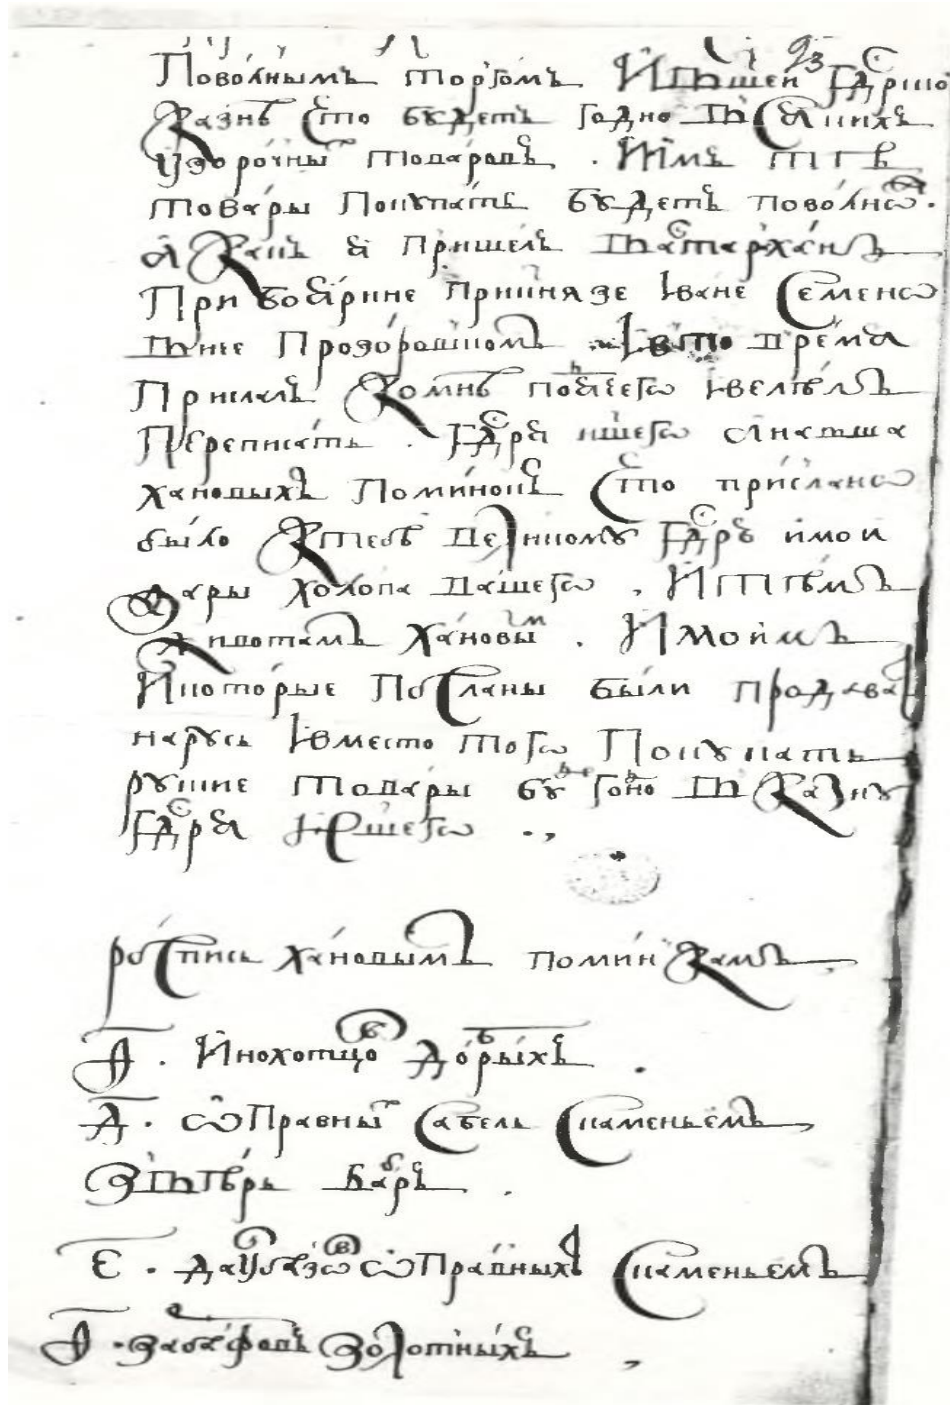 93
Поволнымъ торгомъ Ившей гдрско
казнѣ что будетъ годно Всѧкихъ
узорочны товаровъ . Имъ тѣ
товары Покупать будетъ поволнѡ .
а какъ ѧ пришелъ Вастарханъ
При боѧрине прикнязе Іване Семенѡ
Виче Прозоровъском Івто время
Прислалъ комнѣ Івелѣлъ
Переписать . Гдрѧ ншегѡ Анавша
хановыхъ Поминокъ Что присланѡ
было Ктебѣ Великому Гдрю имои
дары холопа вашегѡ , И Тѣмъ
животамъ Хановы м . И Моимъ
Икоторые Посланы были продава
нарусь Івместо тогѡ Покупать
руские товары Вказну
Гдрѧ ншегѡ .,
роспись хановымъ поминкамъ
д . Инохотцовъ добрыхъ .
д . ѡправны Сабель Скаменьемъ ,
Звѣрь бабръ .
є . ѡправныхъ Скаменьемъ
Золотныхъ ,